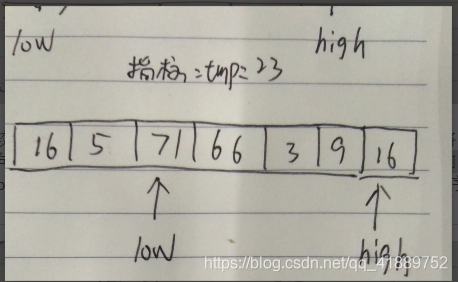 low high
指标=tmp=23
16 5 71 66 3 9 16
low high
https://blog.csdn.net/qq_41889752